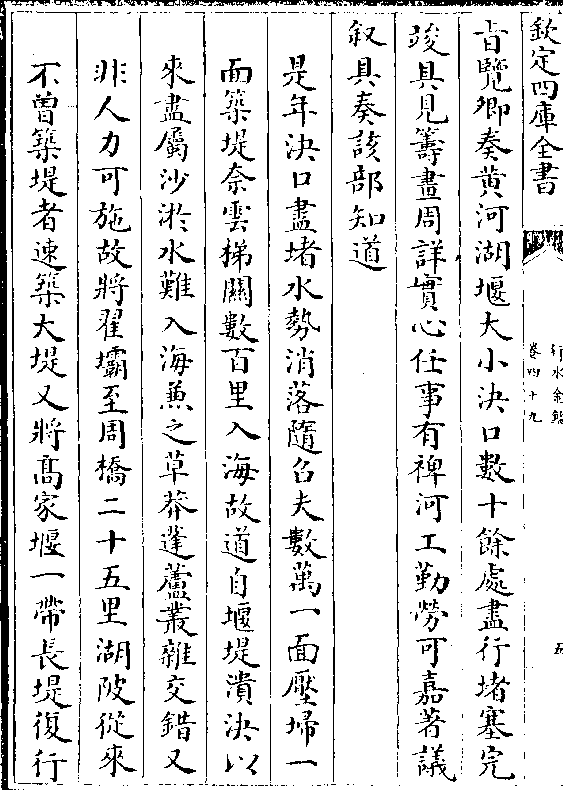 欽定四庫全書
行水金鑑
卷四十九
五
旨覽卿奏黄河湖堰大小決口數十餘處盡行堵塞完
竣具見籌畫周詳實心任事有裨河工勤勞可嘉著議
叙具奏該部知道
是年決口盡堵水勢消落隨召夫數萬一面壓埽一
面築堤奈雲梯關數百里入海故道自堰堤潰決以
來盡屬沙淤水難入海兼之草莽蓬蘆叢雜交錯又
非人力可施故將翟壩至周橋二十五里湖陂從來
不曽築堤者速築大堤又將髙家堰一帶長堤復行